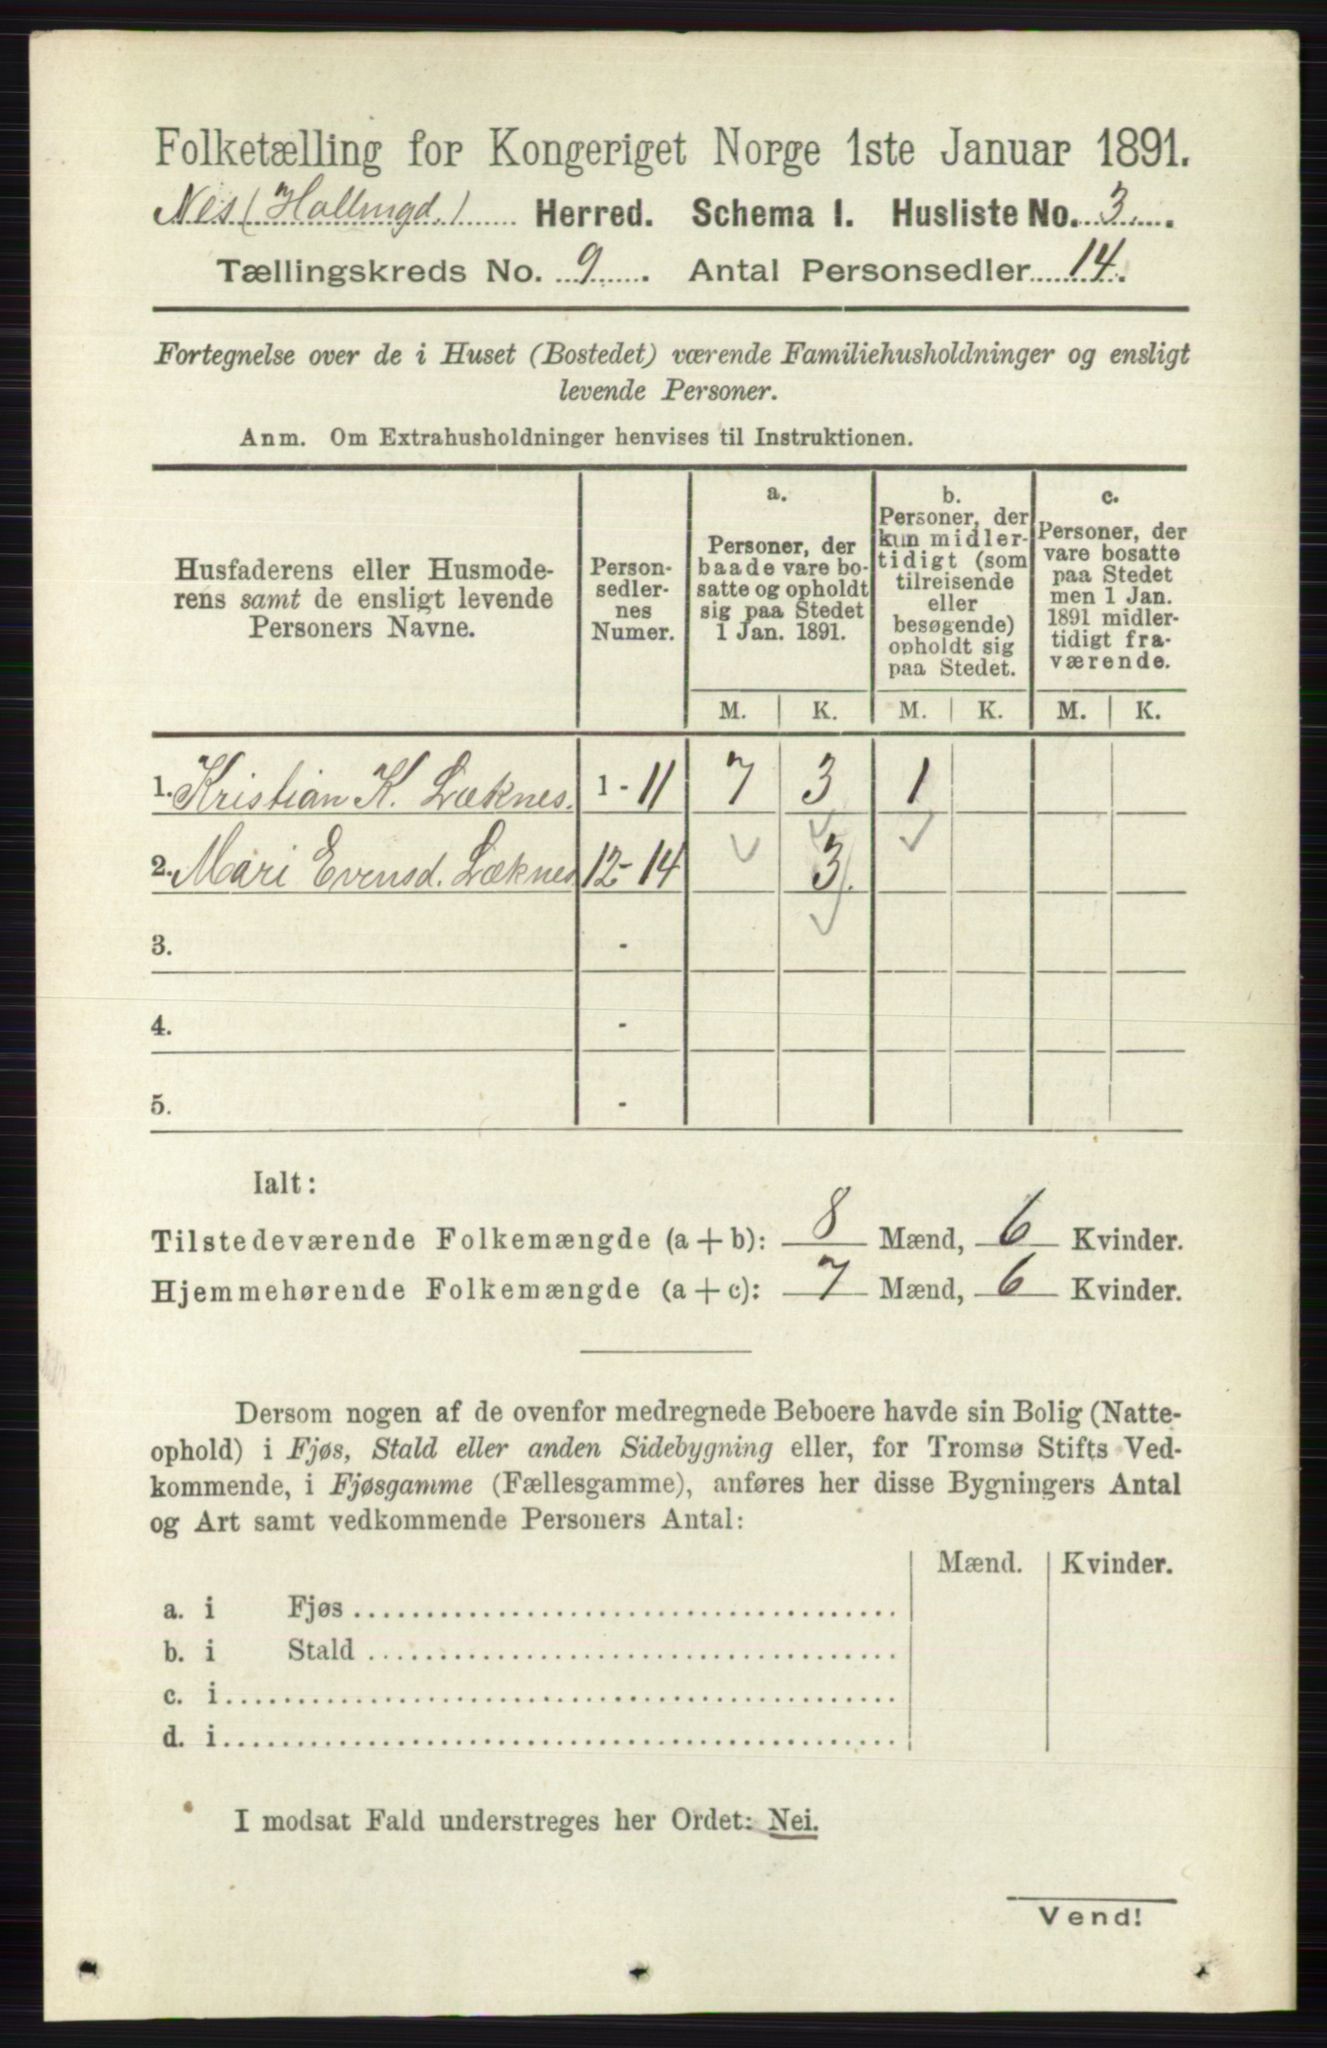 Folketælling for Kongeriget Norge 1ste Januar 1891.
Nes (Hallingd.) Herred. Schema I. Husliste No. 3.
Tællingskreds No. 9. Antal Personsedler 14.
Fortegnelse over de i Huset (Bostedet) værende Familiehusholdninger og ensligt
levende Personer.
Anm. Om Extrahusholdninger henvises til Instruktionen.
Husfaderens eller Husmode-
rens samt de ensligt levende
Personers Navne.
Person-
sedler-
nes
Numer.
a.
Personer, der
baade vare bo-
satte og opholdt
sig paa Stedet
1 Jan. 1891.
b.
Personer, der
kun midler-
tidigt (som
tilreisende
eller
besøgende)
opholdt sig
paa Stedet.
c.
Personer, der
vare bosatte
paa Stedet
men 1 Jan.
1891 midler-
tidigt fra-
værende.
M. K. M. K. M. K.
1. Kristian K. Læknes. 1 - 11 7 3 1
2. Mari Evensd. Læknes 12 - 14 3.
3. -
4. -
5. -
Ialt:
Tilstedeværende Folkemængde (a + b): 8 Mænd, 6 Kvinder.
Hjemmehørende Folkemængde (a + c): 7 Mænd, 6 Kvinder.
Dersom nogen af de ovenfor medregnede Beboere havde sin Bolig (Natte-
ophold) i Fjøs, Stald eller anden Sidebygning eller, for Tromsø Stifts Ved-
kommende, i Fjøsgamme (Fællesgamme), anføres her disse Bygningers Antal
og Art samt vedkommende Personers Antal:
Mænd. Kvinder.
a. i Fjøs
b. i Stald
c. i
d. i
I modsat Fald understreges her Ordet: Nei.
Vend!